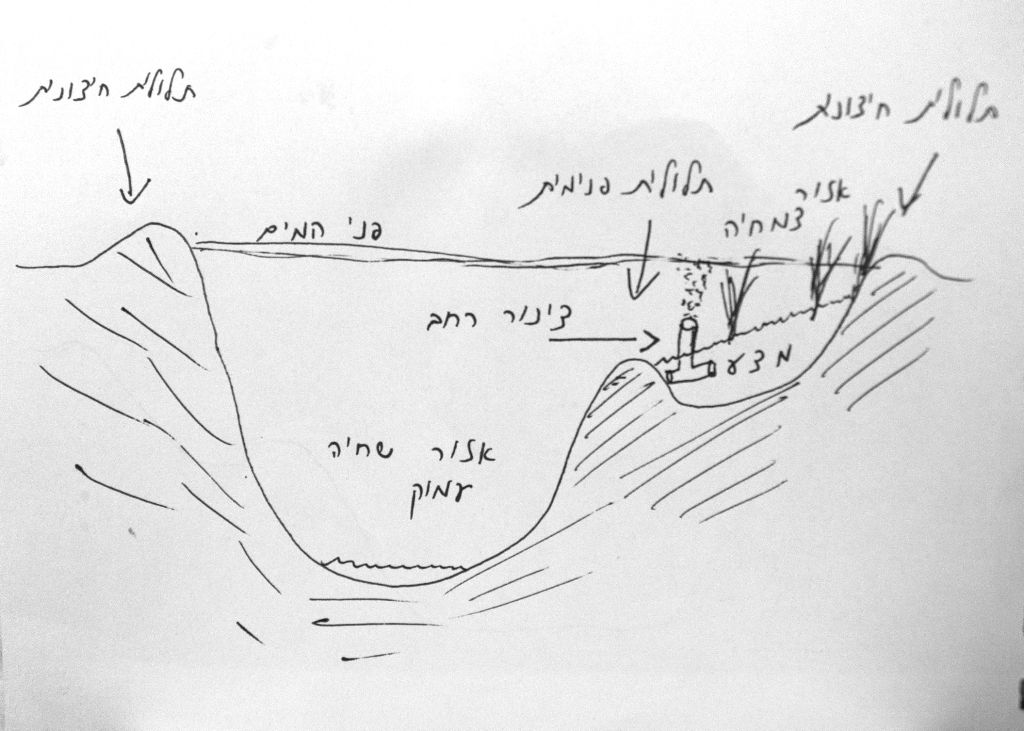 תלולית חיצונית
תלולית חיצונית
תלולית פנימית
אזור
צמחיה
פני המים
צינור רחב
מצע
אזור שחיה
עמוק